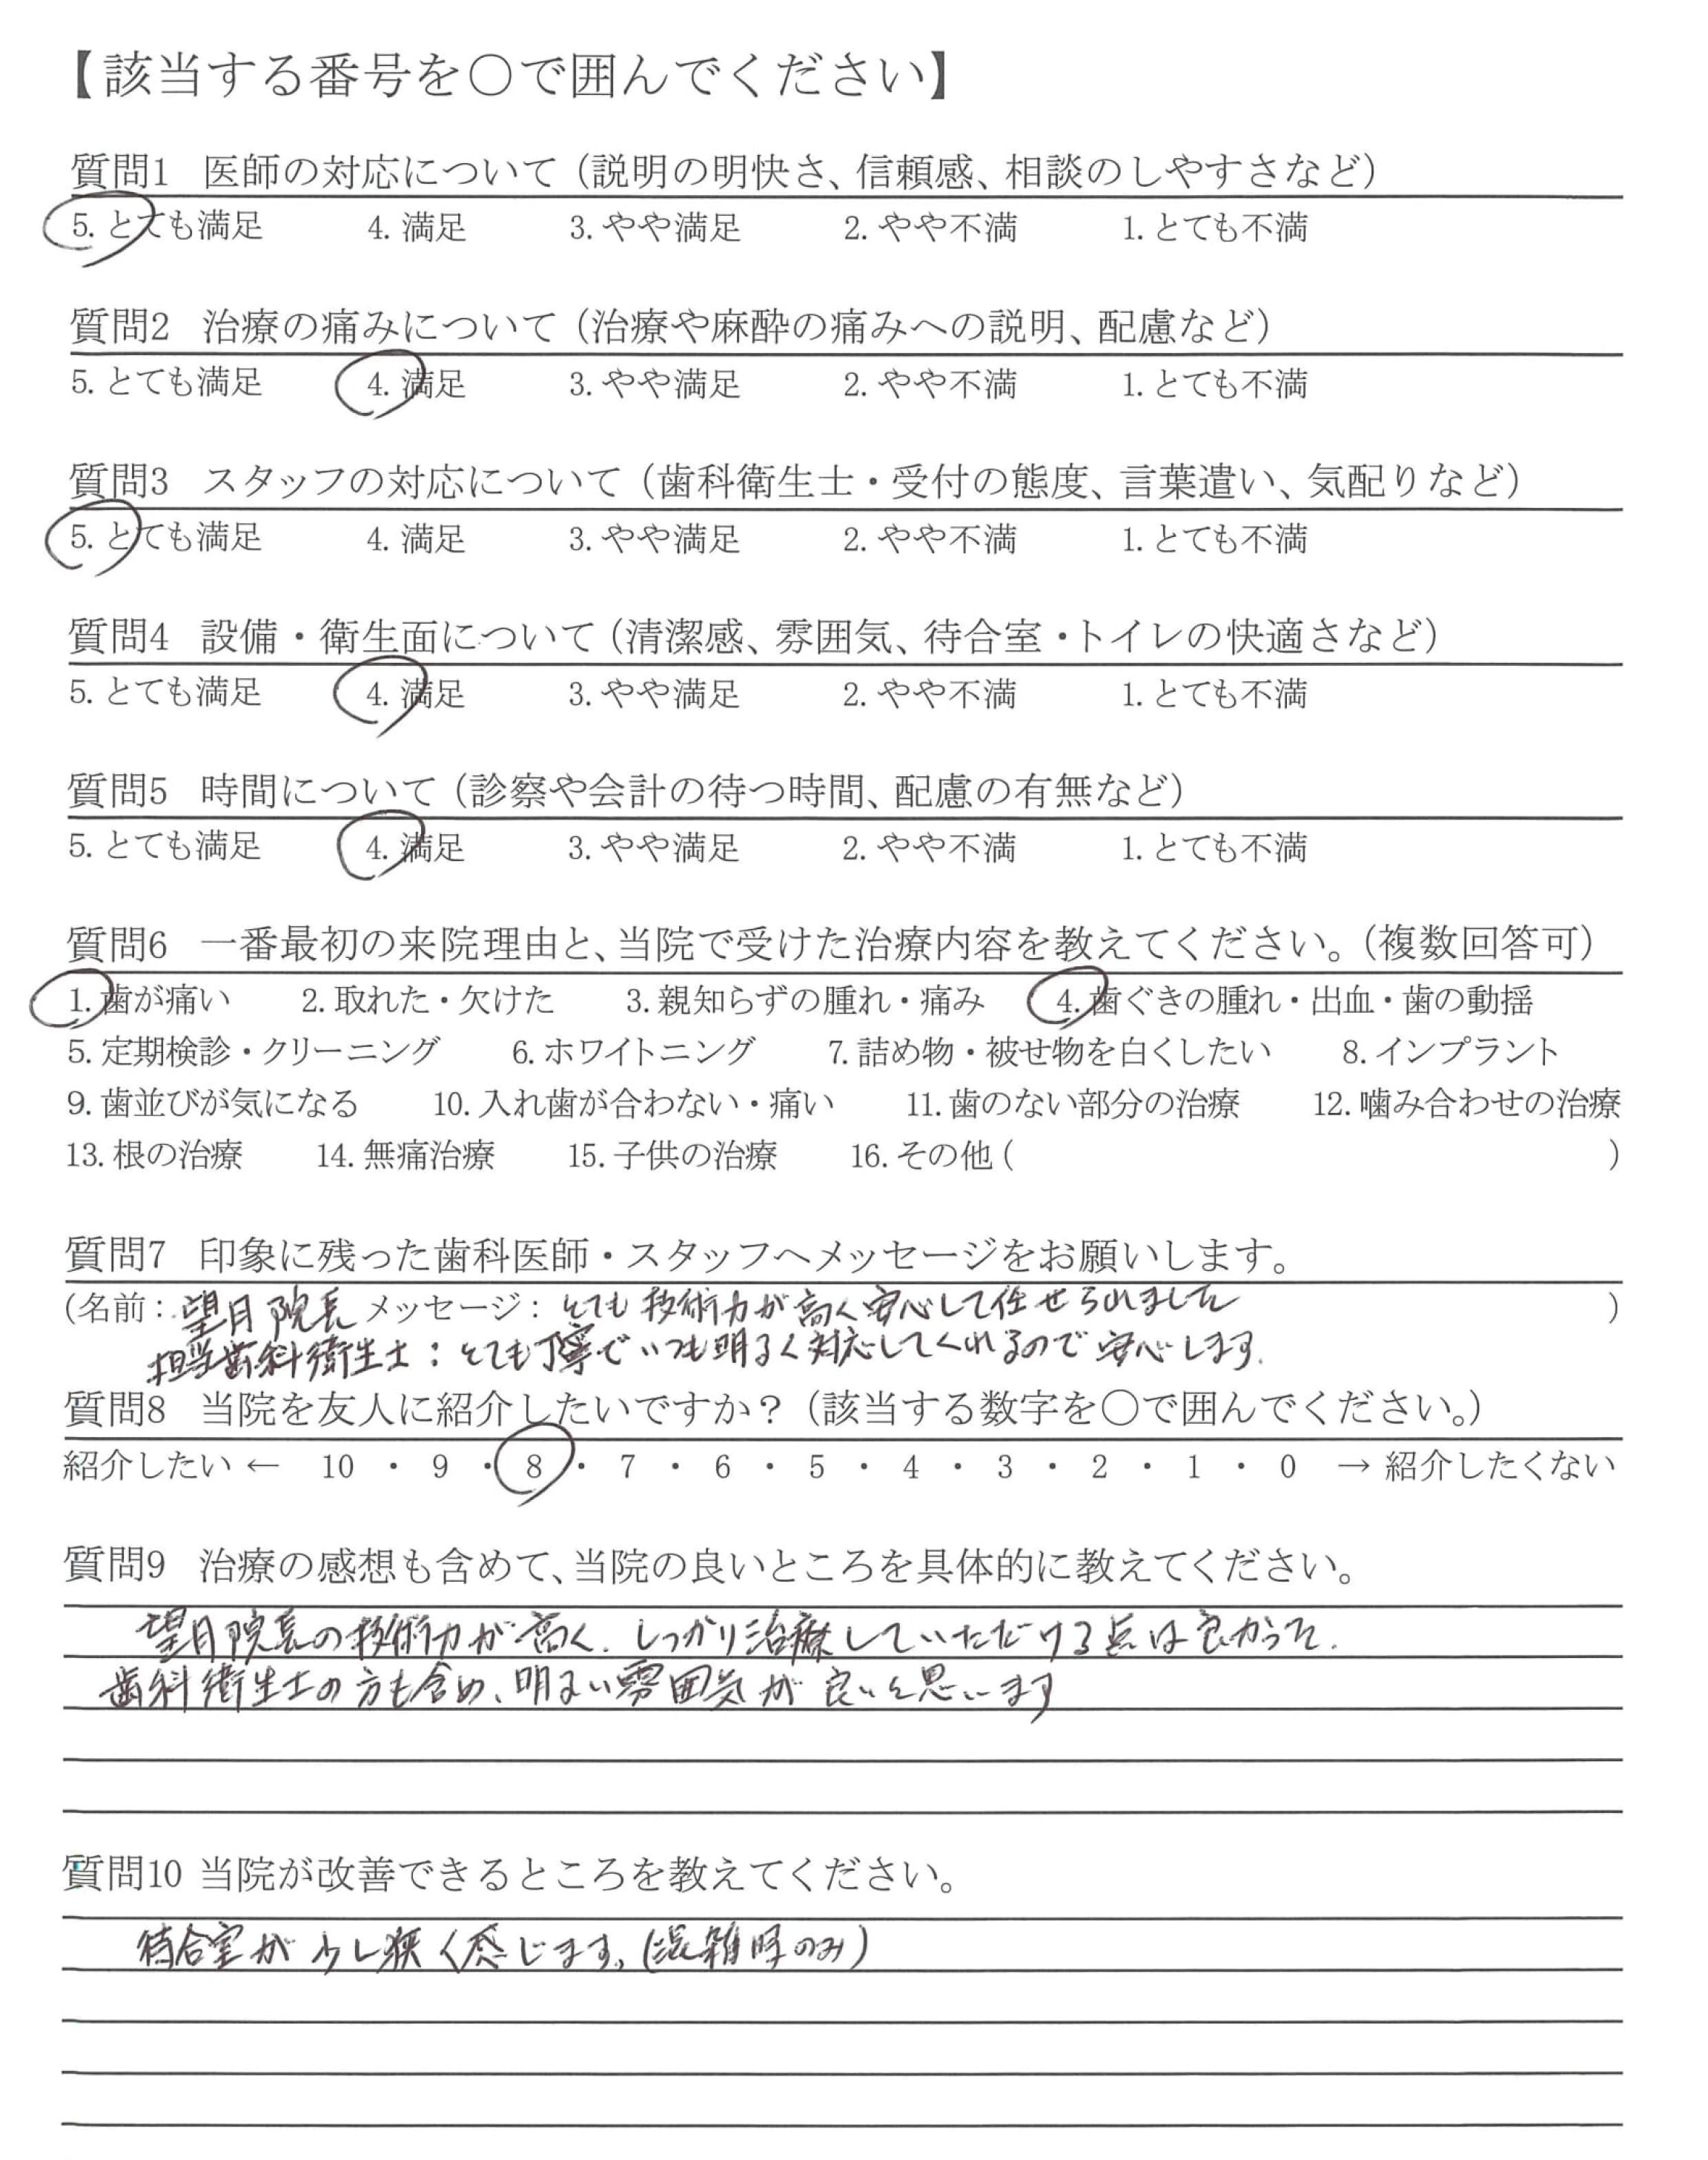 【該当する番号を〇で囲んでください】
質問1 医師の対応について（説明の明快さ、信頼感、相談のしやすさなど）
5. とても満足 4. 満足 3. やや満足 2. やや不満 1. とても不満
質問2 治療の痛みについて（治療や麻酔の痛みへの説明、配慮など）
5. とても満足 4. 満足 3. やや満足 2. やや不満 1. とても不満
質問3 スタッフの対応について（歯科衛生士・受付の態度、言葉遣い、気配りなど）
5. とても満足 4. 満足 3. やや満足 2. やや不満 1. とても不満
質問4 設備・衛生面について（清潔感、雰囲気、待合室・トイレの快適さなど）
5. とても満足 4. 満足 3. やや満足 2. やや不満 1. とても不満
質問5 時間について（診察や会計の待つ時間、配慮の有無など）
5. とても満足 4. 満足 3. やや満足 2. やや不満 1. とても不満
質問6 一番最初の来院理由と、当院で受けた治療内容を教えてください。（複数回答可）
1. 歯が痛い 2. 取れた・欠けた 3. 親知らずの腫れ・痛み 4. 歯ぐきの腫れ・出血・歯の動揺
5. 定期検診・クリーニング 6. ホワイトニング 7. 詰め物・被せ物を白くしたい 8. インプラント
9. 歯並びが気になる 10. 入れ歯が合わない・痛い 11. 歯のない部分の治療 12. 噛み合わせの治療
13. 根の治療 14. 無痛治療 15. 子供の治療 16. その他（ ）
質問7 印象に残った歯科医師・スタッフへメッセージをお願いします。
（名前：望月院長 メッセージ：とても技術力が高く安心して任せられました ）
担当歯科衛生士：とても丁寧でいつも明るく対応してくれるので安心します.
質問8 当院を友人に紹介したいですか？（該当する数字を〇で囲んでください。）
紹介したい ← 10 ・ 9 ・ 8 ・ 7 ・ 6 ・ 5 ・ 4 ・ 3 ・ 2 ・ 1 ・ 0 → 紹介したくない
質問9 治療の感想も含めて、当院の良いところを具体的に教えてください。
望月院長の技術力が高く、しっかり治療していただける点は良かった.
歯科衛生士の方も含め、明るい雰囲気が良いと思います
質問10 当院が改善できるところを教えてください。
待合室が少し狭く感じます。（混雑時のみ）